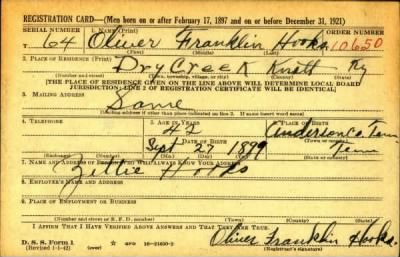 REGISTRATION CARD—(Men born on or after February 17, 1897 and on or before December 31, 1921)
SERIAL NUMBER 1. NAME (Print) ORDER NUMBER
T 64 Oliver Franklin Hooks 10650
(First) (Middle) (Last)
2. PLACE OF RESIDENCE (Print)
Dry Creek Knott Ky
(Number and street) (Town, township, village, or city) (County) (State)
[THE PLACE OF RESIDENCE GIVEN ON THE LINE ABOVE WILL DETERMINE LOCAL BOARD
JURISDICTION; LINE 2 OF REGISTRATION CERTIFICATE WILL BE IDENTICAL]
3. MAILING ADDRESS
Same
(Mailing address if other than place indicated on line 2. If same insert word same)
4. TELEPHONE 5. AGE IN YEARS 6. PLACE OF BIRTH
42 Anderson Co. Tenn
DATE OF BIRTH
Sept 27 1899 Tenn
7. NAME AND ADDRESS OF PERSON WHO WILL ALWAYS KNOW YOUR ADDRESS
Zettie Hooks
8. EMPLOYER'S NAME AND ADDRESS
9. PLACE OF EMPLOYMENT OR BUSINESS
(Number and street or R. F. D. number) (Town) (County) (State)
I AFFIRM THAT I HAVE VERIFIED ABOVE ANSWERS AND THAT THEY ARE TRUE.
D. S. S. Form 1 (over) GPO 16—21630-2 Oliver Franklin Hooks.
(Revised 1-1-42) (Registrant's signature)